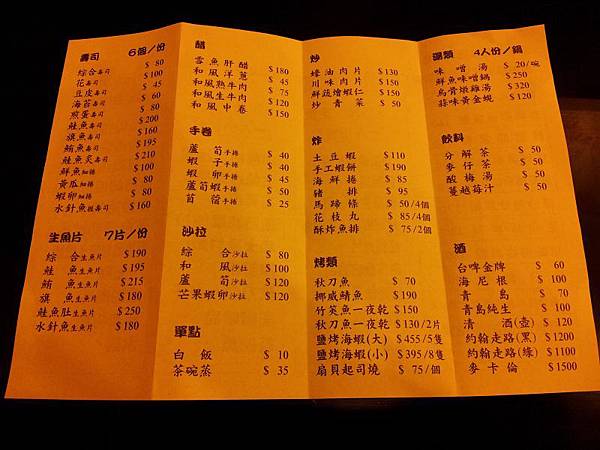 壽司 6個/份
綜合壽司 $ 80
花壽司 $ 100
豆皮壽司 $ 45
海苔壽司 $ 60
煎蛋壽司 $ 80
鮭魚壽司 $ 200
旗魚壽司 $ 160
鮪魚壽司 $ 195
鮭魚炙壽司 $ 210
鮮魚細捲 $ 100
黃瓜細捲 $ 80
蝦卵細捲 $ 80
水針魚握壽司 $ 160
生魚片 7片/份
綜合生魚片 $ 190
鮭魚生魚片 $ 195
鮪魚生魚片 $ 215
旗魚生魚片 $ 180
鮭魚肚生魚片 $ 250
水針魚生魚片 $ 180
醋
雪魚肝醋 $ 180
和風洋蔥 $ 45
和風熟牛肉 $ 75
和風生牛肉 $ 120
和風中卷 $ 150
手卷
蘆筍手捲 $ 40
蝦子手捲 $ 40
蝦卵手捲 $ 45
蘆筍蝦手捲 $ 50
苜蓿手捲 $ 25
沙拉
綜合沙拉 $ 80
和風沙拉 $ 100
蘆筍沙拉 $ 120
芒果蝦卵沙拉 $ 120
單點
白飯 $ 10
茶碗蒸 $ 35
炒
蠔油肉片 $130
川味肉片 $150
鮮蔬燴蝦仁 $150
炒青菜 $ 50
炸
土豆蝦 $110
手工蝦餅 $190
海鮮捲 $ 85
豬排 $ 95
馬蹄條 $ 50/4個
花枝丸 $ 85/4個
酥炸魚排 $ 75/2個
烤類
秋刀魚 $ 70
挪威鯖魚 $ 190
竹筴魚一夜乾 $ 150
秋刀魚一夜乾 $ 130/2片
鹽烤海蝦(大) $ 455/5隻
鹽烤海蝦(小) $ 395/8隻
扇貝起司燒 $ 75/個
湯類 4人份/鍋
味噌湯 $ 20/碗
鮮魚味噌鍋 $ 250
烏骨燉雞湯 $ 320
蒜味黃金蜆 $ 120
飲料
分解茶 $ 50
麥仔茶 $ 50
酸梅湯 $ 50
蔓越苺汁 $ 50
酒
台啤金牌 $ 60
海尼根 $ 70
青島 $ 70
青島純生 $ 100
清酒(壺) $ 120
約翰走路(黑) $ 1200
約翰走路(綠) $ 1100
麥卡倫 $ 1500